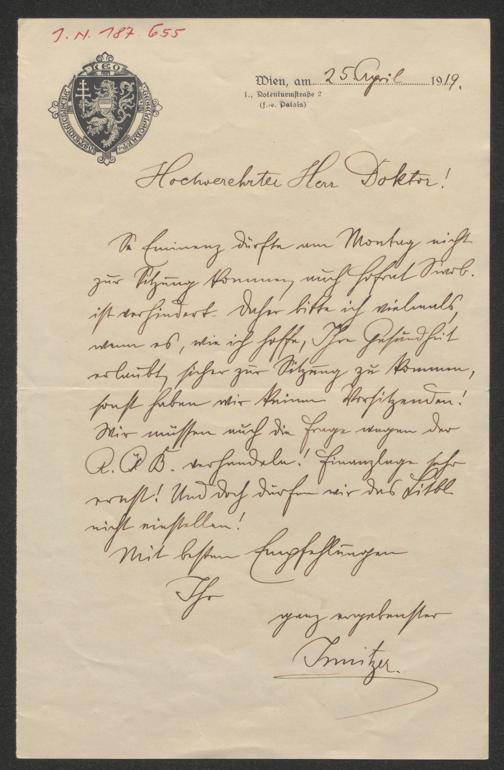 J. N. 187 655
LEO
Wien, am 25. April 1919.
I., Rotenturmstraße 2
(f.-e. Palais)
Hochverehrter Herr Doktor!
Se Eminenz dürfte am Montag nicht
zur Sitzung kommen, auch Hofrat Swob.
ist verhindert. Daher bitte ich vielmals,
wenn es, wie ich hoffe, Ihre Gesundheit
erlaubt, sicher zur Sitzung zu kommen,
sonst haben wir keinen Vorsitzenden!
Wir müssen auch die Frage wegen der
verhandeln! Finanzlage sehr
ernst! Und doch dürfen wir das Litbl.
nicht einstellen!
Mit besten Empfehlungen
Ihr
ganz ergebenster
Innitzer.